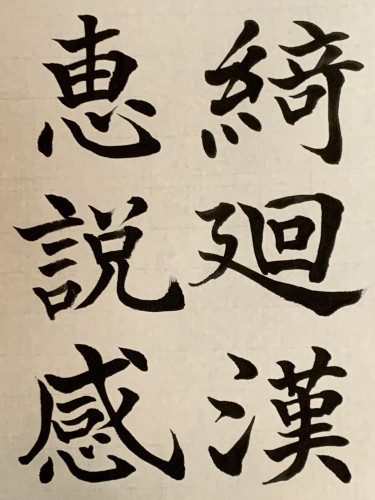 綺廻漢
恵説感